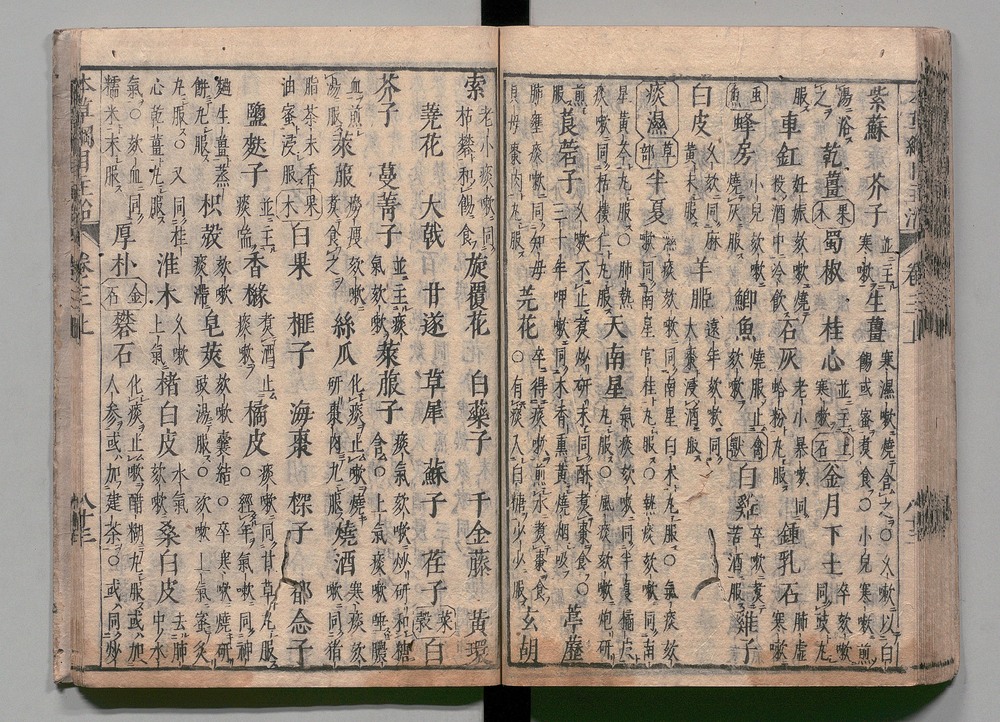 紫蘇 芥子 並主寒嗽 生薑 寒濕嗽燒含之○久嗽以白餳或蜜煮食○小兒寒嗽煎
湯浴之 乾薑 果木 蜀椒 桂心 並主寒嗽 土石 釜月下土 卒咳嗽同豉丸
服 車釭 妊娠咳嗽燒投酒中冷飲 石灰 老小暴嗽同蛤粉丸服 鍾乳石 肺虛寒嗽
虫魚 蜂房 小兒咳嗽燒灰服 鯽魚 燒服止咳嗽 禽獸 白雞 卒嗽煮苦酒服 雞子
白皮 久咳同麻黃末服 羊胵 遠年咳嗽同大棗浸酒服
痰濕 草部 半夏 濕痰咳嗽同南星白朮丸服○氣痰咳嗽同南星官桂丸服○熱痰咳嗽同南
星黃芩丸服○肺熱痰嗽同栝樓仁丸服 天南星 氣痰咳嗽同半夏橘皮丸服○風痰咳嗽炮研
煎服 莨菪子 久嗽不止煮炒研同酥煮棗食○三十年呷嗽同木香熏黃燒烟吸 葶藶
肺壅痰嗽同知母貝母棗肉丸服 芫花 卒得痰嗽煎水煮棗食○有痰入白糖少少服 玄胡
索 老小痰嗽同枯礬和餳食 旋覆花 白藥子 千金藤 黃環
蕘花 大戟 甘遂 草犀 蘇子 荏子 菜穀 白
芥子 蔓菁子 並主痰氣咳嗽 萊菔子 痰氣咳嗽炒研和糖含○上氣痰嗽唾膿
血煎湯服 萊菔 癆瘦咳嗽煮食之 絲瓜 化痰止嗽燒研棗肉丸服 燒酒 寒痰咳嗽同猪
脂茶末香油蜜浸服 果木 白果 榧子 海棗 㮏子 都念子
鹽麩子 並主痰嗽 香櫞 煮酒止痰咳 橘皮 痰嗽同甘草丸服○經年氣嗽同神
麯生薑蒸餅丸服 枳殼 咳嗽痰滯 皂莢 咳嗽囊結○卒寒嗽燒研豉湯服○咳嗽上氣蜜炙
丸服○又同桂心乾薑丸服 淮木 久嗽上氣 楮白皮 水氣咳嗽 桑白皮 去肺中水
氣○咳血同糯米末服 厚朴 金石 礬石 化痰止嗽醋糊丸服或加人參或加建茶○或同炒
本草綱目主治 卷三上 八十三